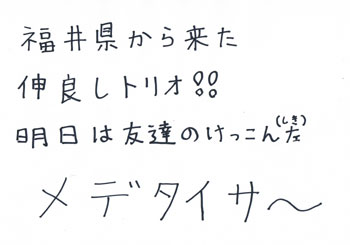 福井県から来た
仲良しトリオ!!
明日は友達のけっこん(しき)だ
メデタイサ〜